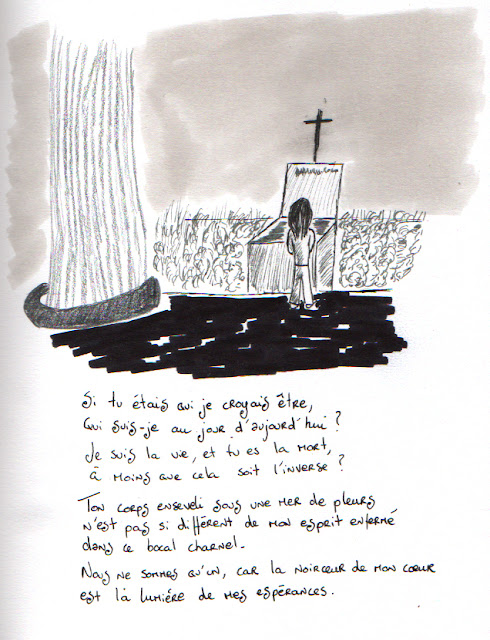 Si tu étais qui je croyais être,
Qui suis-je au jour d'aujourd'hui ?
Je suis la vie, et tu es la mort,
à moins que cela soit l'inverse ?
Ton corps enseveli sous une mer de pleurs
n'est pas si différent de mon esprit enfermé
dans ce bocal charnel.
Nous ne sommes qu'un, car la noirceur de mon cœur
est là lumière de mes espérances.